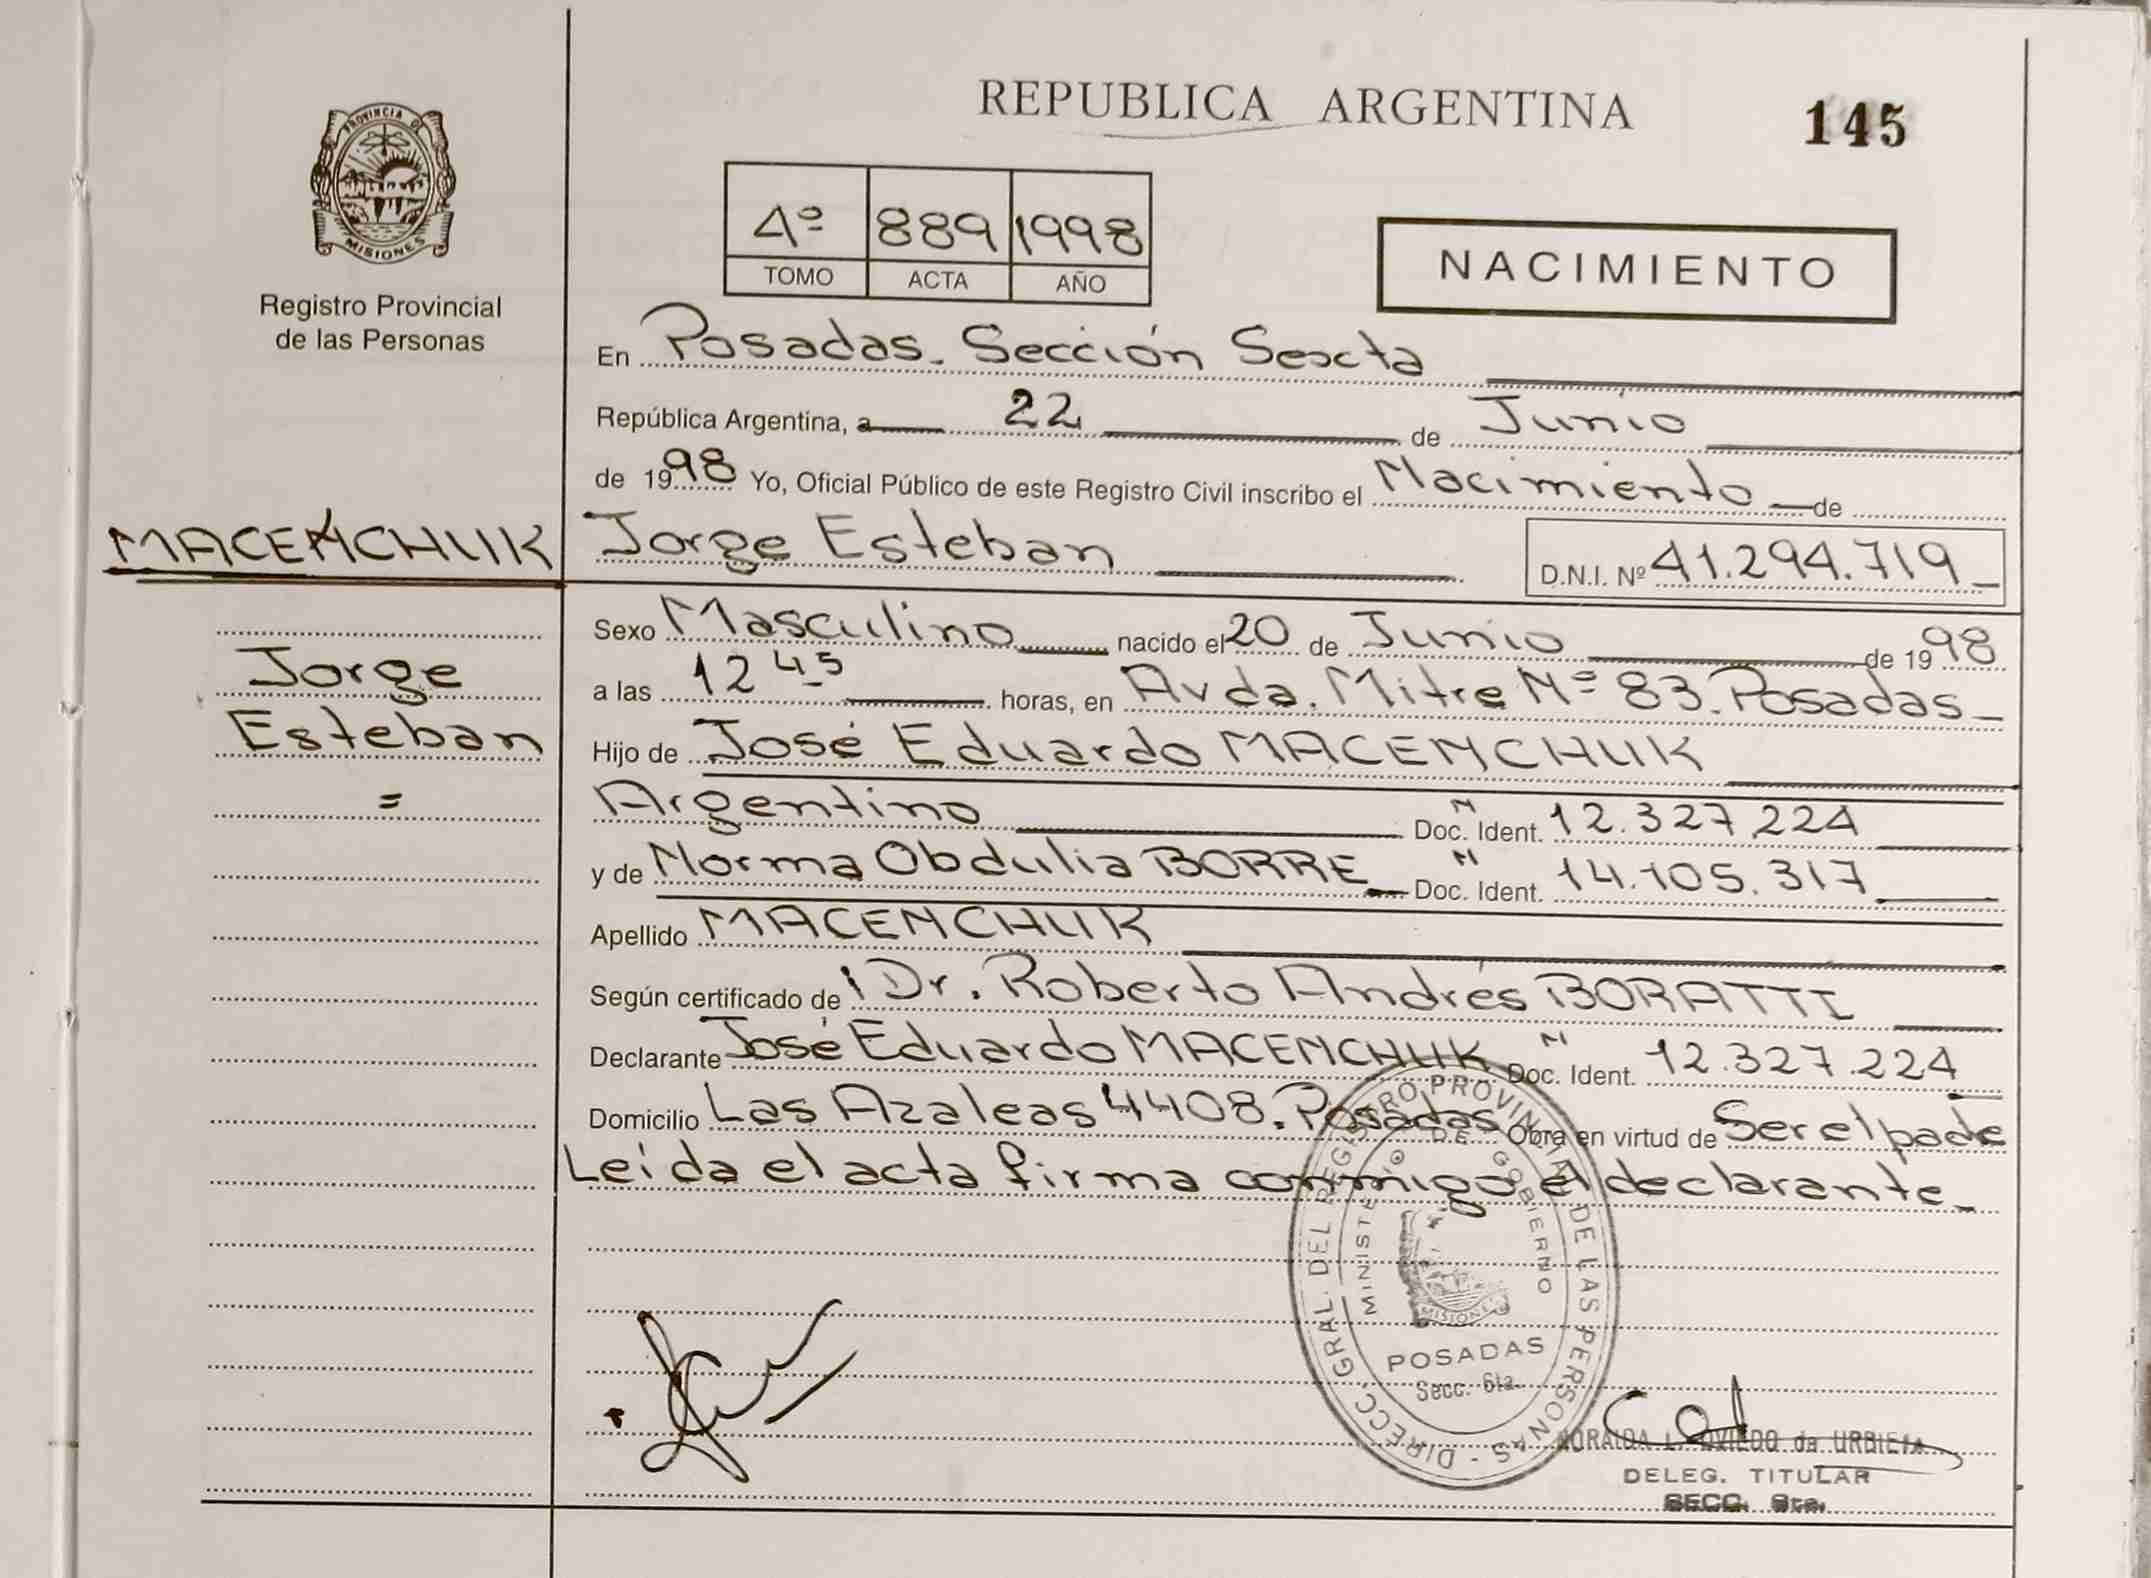 REPUBLICA ARGENTINA
145
PROVINCIA DE
MISIONES
Registro Provincial
de las Personas
4º 889 1998
TOMO ACTA AÑO
NACIMIENTO
En Posadas. Sección Sexta
República Argentina, a 22 de Junio
de 1998 Yo, Oficial Público de este Registro Civil inscribo el Nacimiento de
MACENCHUK Jorge Esteban D.N.I. Nº 41.294.719
Sexo Masculino nacido el 20 de Junio de 1998
Jorge
a las 12 45 horas, en Avda. Mitre Nº 83. Posadas
Esteban
Hijo de José Eduardo MACENCHUK
Argentino N Doc. Ident. 12.327.224
y de Norma Obdulia BORRE N Doc. Ident. 14.105.317
Apellido MACENCHUK
Según certificado de Dr. Roberto Andrés BORATTI
Declarante José Eduardo MACENCHUK N Doc. Ident. 12.327.224
Domicilio Las Azaleas 4408. Posadas Obra en virtud de Ser el pade
Leída el acta firma conmigo el declarante
DIRECC. GRAL. DEL REGISTRO PROVINCIAL DE LAS PERSONAS
MINISTERIO DE GOBIERNO
MISIONES
POSADAS
Secc. 6ta.
L. OVIEDO de URBIETA
DELEG. TITULAR
SECC. 6ta.